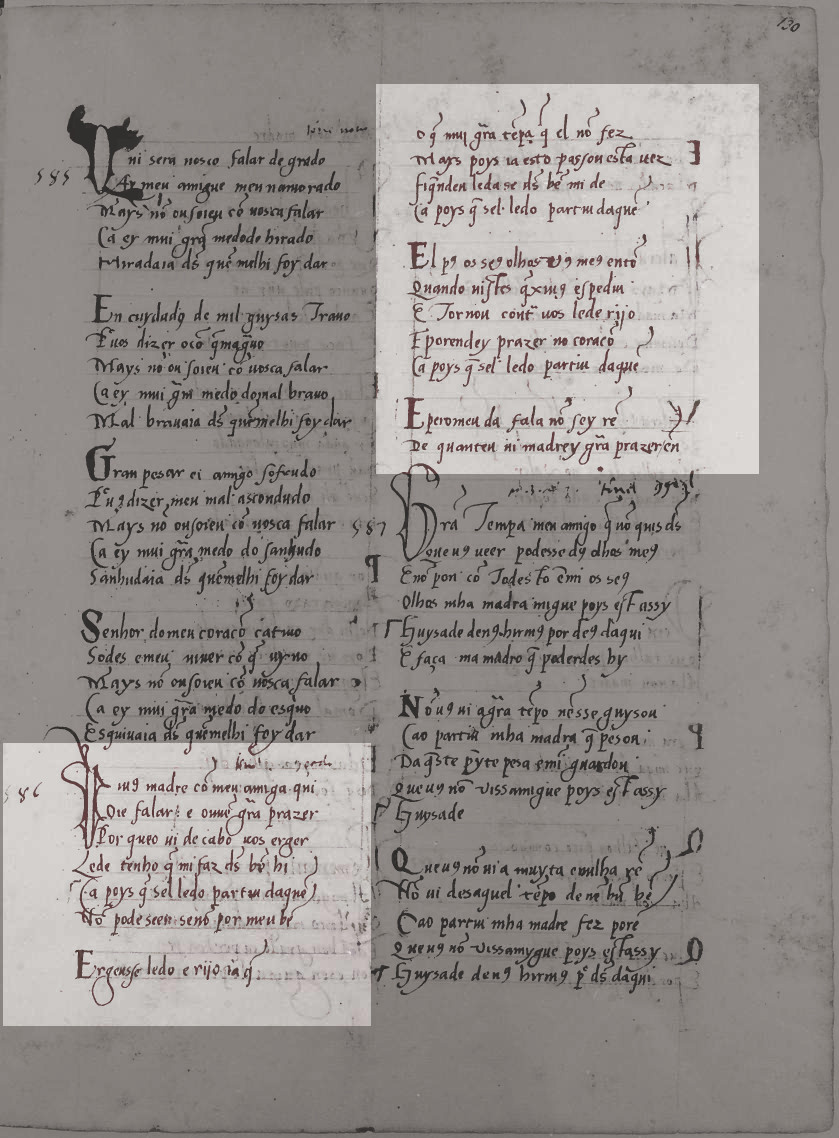 130
Vni sera nosco falar de grado
585
Ay meu amigue meu namorado
Mays nō ousoieu cō uosca falar
Ca ey mui grā medodo hirado
Hiradaia dẽ quẽ melhi foy dar
En cuydado de mil guysas Trauo
Mays nō ousoieu cō uosca falar
Ca ey mui grā medo do mal brauo
Mal brauaia dẽ quẽ melhi foy dar
Gran pesar ei amigo sofrendo
Por uꝯ dizer meu mal ascondudo
Mays nō ousoieu cō uosca falar
Ca ey mui grā medo do sanhudo
Sanhudaia dẽ quẽ melhi foy dar
Senhor do meu coraçō catiuo
Sodes emeu uiuer cō q̄ uyuo
Mays nō ousoieu cō uosca falar
Ca ey mui grā medo do esquo
Esquiuaia dẽ quẽ melhi foy dar
586
Por uꝯ madre cō meu amiga qui
Oie falar e ouue grā prazer
Por queo ui de cabo uos erger
Lede tenho q̄ mi faz dẽ bē hi
Ca poys q̄ sel ledo partiu daquē
Nō pode seer senō por meu bē
Ergense ledo e rijo ia q̄
o q̄ mui grā tēpa q̄ el nō fez
Mays poys ia esto passou esta uez
fiq̄nden ledase dẽ bē mi de
Ca poys q̄ sel ledo partiu daquē
El pꝯ os seꝯ olhos nꝯ meꝯ entō
Quando uistes q̄xiuꝯ espediu
E Tornou contr uos lede rijo
E porendey prazer no coraçō
Ca poys q̄ sel ledo partiu daquē
E peromeu da fala nō sey rē
De quanteu ui madrey grā prazerēn
587
Grā Tempa meu amigo q̄ nō quis dẽ
Que uꝯ ueer podesse dꝯ olhos meꝯ
E nō pon cō Todesto ē mi os seꝯ
Olhos mha madra migue poys estassy
Guysade denꝯ hirmꝯ por deꝯ daqui
E faça ma madro q̄ poderdes by
Nō uꝯ ui agrā tēpo nesse guysou
Cao partiu mha madra q̄ pesou
Daq̄ste pryte pesa e mī guardou
Que uꝯ nō uissamigue poys estassy
Guysade
Que uꝯ nō ui a muyta e mulha rē
Nō ui desaquel tēpo de nē hū bē
Cao partiu mha madre fez porē
Que uꝯ nō uissamygue poys estassy
Guysade denꝯ hirmꝯ por dẽ daqui